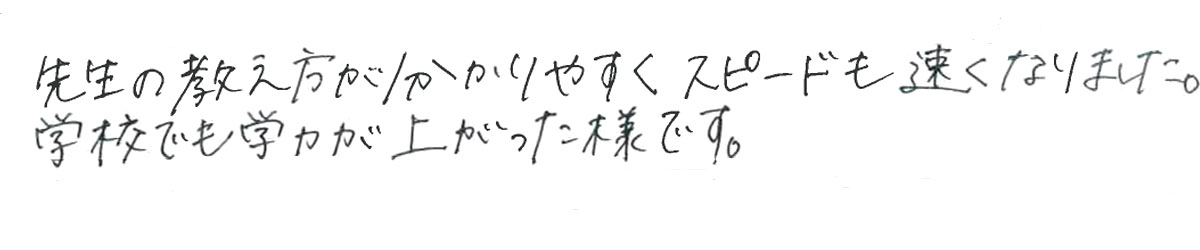 先生の教え方が分かりやすくスピードも速くなりました。
学校でも学力が上がった様です。